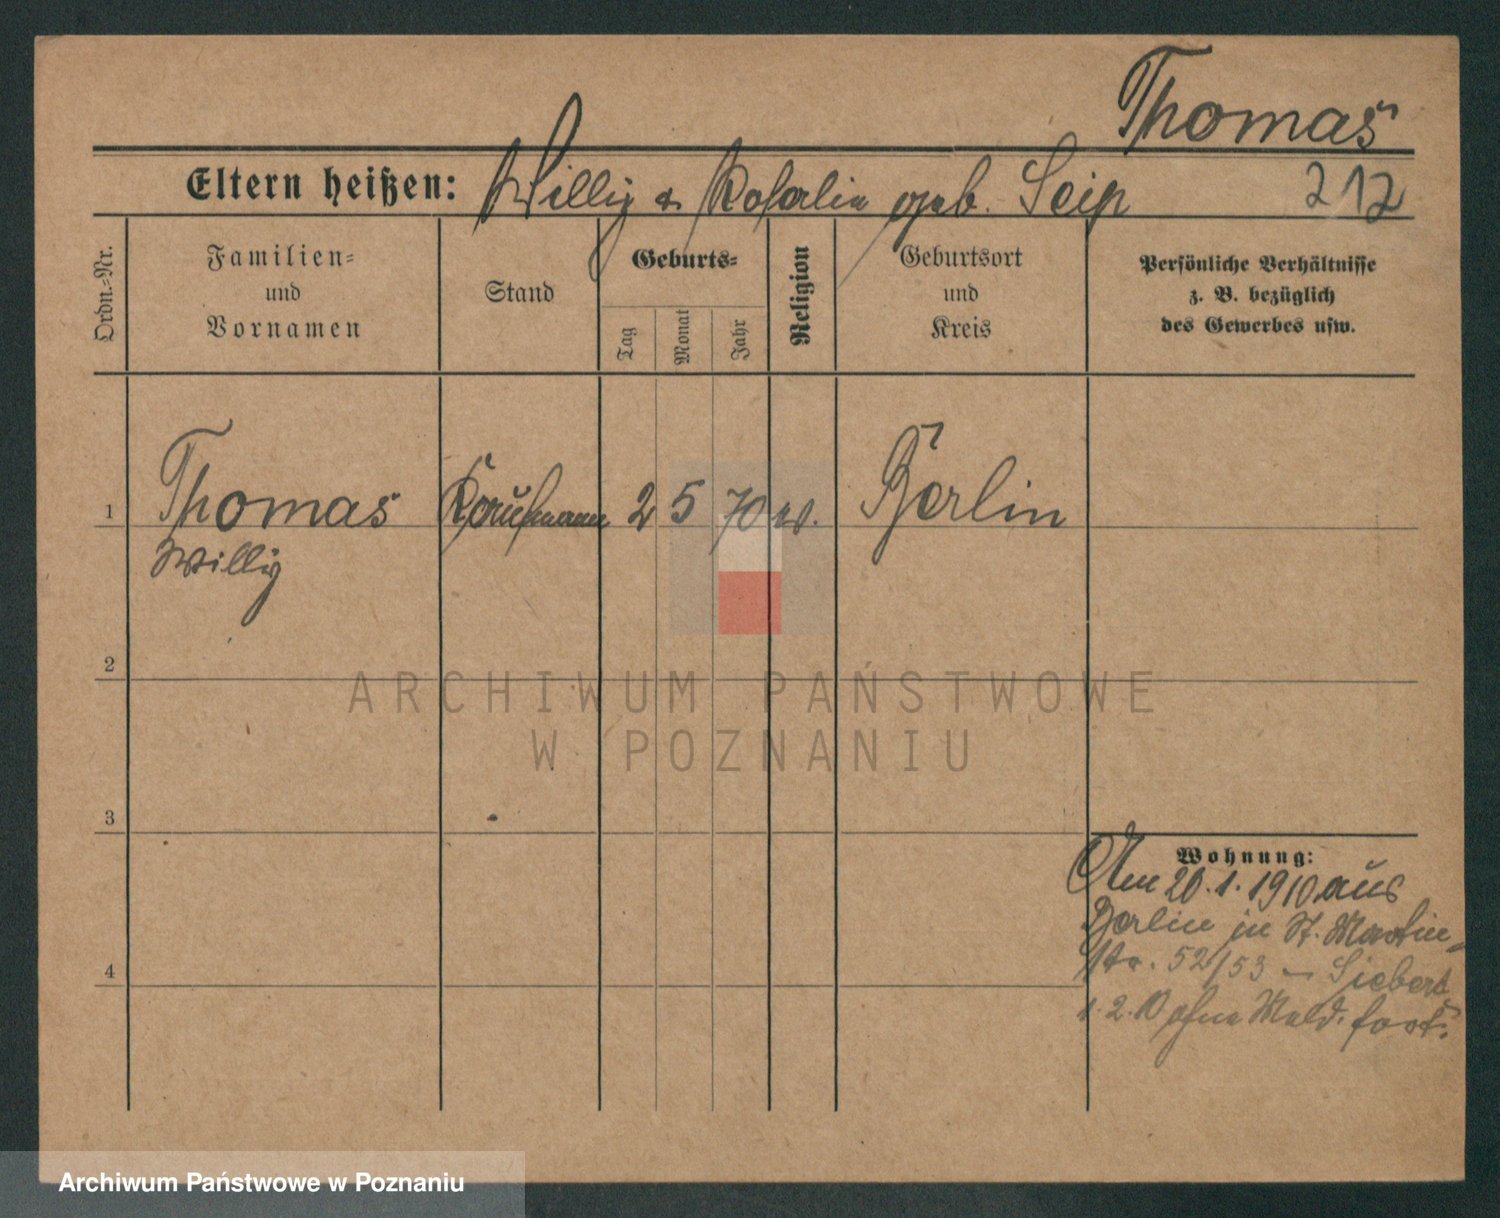 Thomas
Eltern heißen: Willy & Rosalie geb. Seip 212
Ordn.-Nr.
Familien-
und
Vornamen
Stand
Geburts-
Tag
Monat
Jahr
Religion
Geburtsort
und
Kreis
Persönliche Verhältnisse
z. B. bezüglich
des Gewerbes usw.
1 Thomas Kaufmann 2 5 70 ev. Berlin
Willy
2
3
4
Wohnung:
Am 20.1.1910 aus
Berlin in St. Martin-
str. 52/53 – Siebert
1.2.10 ohne Meld. fort.
ARCHIWUM PAŃSTWOWE
W POZNANIU
Archiwum Państwowe w Poznaniu